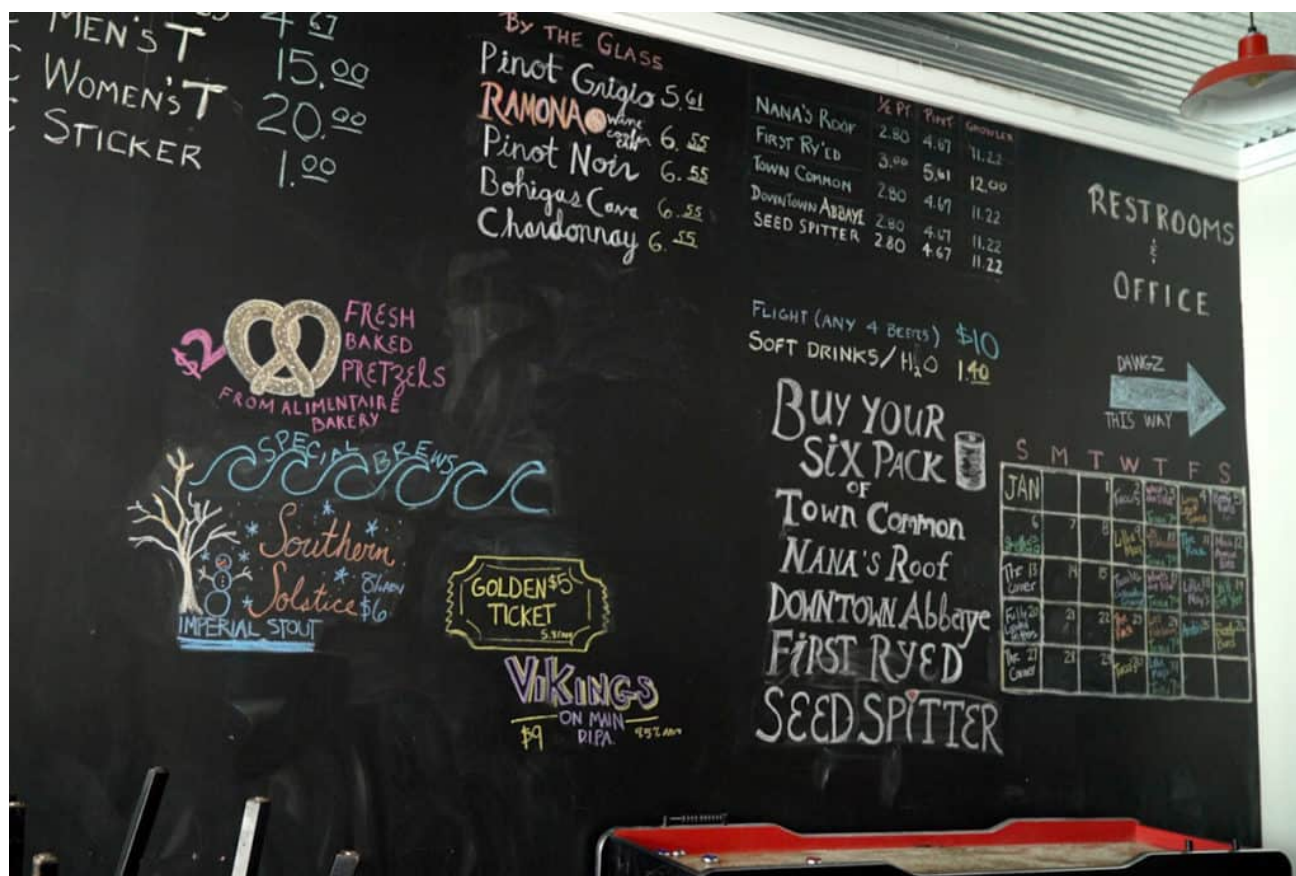 4.67
MEN'S T 15.00
WOMEN'S T 20.00
STICKER 1.00
BY THE GLASS
Pinot Grigio 5.61
RAMONA wine cooler can 6.55
Pinot Noir 6.55
Bohigas Cava 6.55
Chardonnay 6.55
½ PT. PINT GROWLER
NANA'S ROOF 2.80 4.67 11.22
FIRST RY'ED 3.00 5.61 12.00
TOWN COMMON 2.80 4.67 11.22
DOWNTOWN ABBAYE 2.80 4.67 11.22
SEED SPITTER 2.80 4.67 11.22
FLIGHT (ANY 4 BEERS) $10
SOFT DRINKS/H2O 1.40
RESTROOMS
&
OFFICE
DAWGZ
THIS WAY
$2
FRESH
BAKED
PRETZELS
FROM ALIMENTAIRE
BAKERY
SPECIAL BREWS
Southern
Solstice 8% ABV
$6
IMPERIAL STOUT
GOLDEN $5
TICKET
VIKINGS
ON MAIN
$9 D.I.P.A.
BUY YOUR
SIX PACK
OF
TOWN COMMON
NANA'S ROOF
DOWNTOWN Abbaye
FIRST RYED
SEED SPITTER
S M T W T F S
JAN 1 4
6 7 8
The 13 Corner 14 15
Fully 20 Loaded 21 22
The 27 Corner 28 29